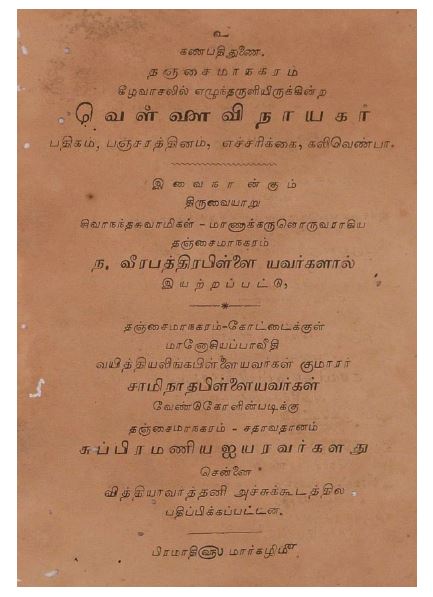 உ
கணபதிதுணை.
தஞ்சைமாநகரம்
கீழவாசலில் எழுந்தருளியிருக்கின்ற
வெள்ளைவிநாயகர்
பதிகம், பஞ்சரத்தினம், எச்சரிக்கை, கலிவெண்பா.
இவைநான்கும்
திருவையாறு
சிவாநந்தசுவாமிகள் - மாணாக்கருளொருவராகிய
தஞ்சைமாநகரம்
ந. வீரபத்திரபிள்ளை யவர்களால்
இயற்றப்பட்டு,
தஞ்சைமாநகரம்-கோட்டைக்குள்
மானோஜியப்பாவீதி
வயித்தியலிங்கபிள்ளையவர்கள் குமாரர்
சாமிநாதபிள்ளையவர்கள்
வேண்டுகோளின்படிக்கு
தஞ்சைமாநகரம் - சதாவதானம்
சுப்பிரமணிய ஐயரவர்களது
சென்னை
வித்தியாவர்த்தனி அச்சுக்கூடத்தில்
பதிப்பிக்கப்பட்டன.
பிரமாதி௵ மார்கழி௴